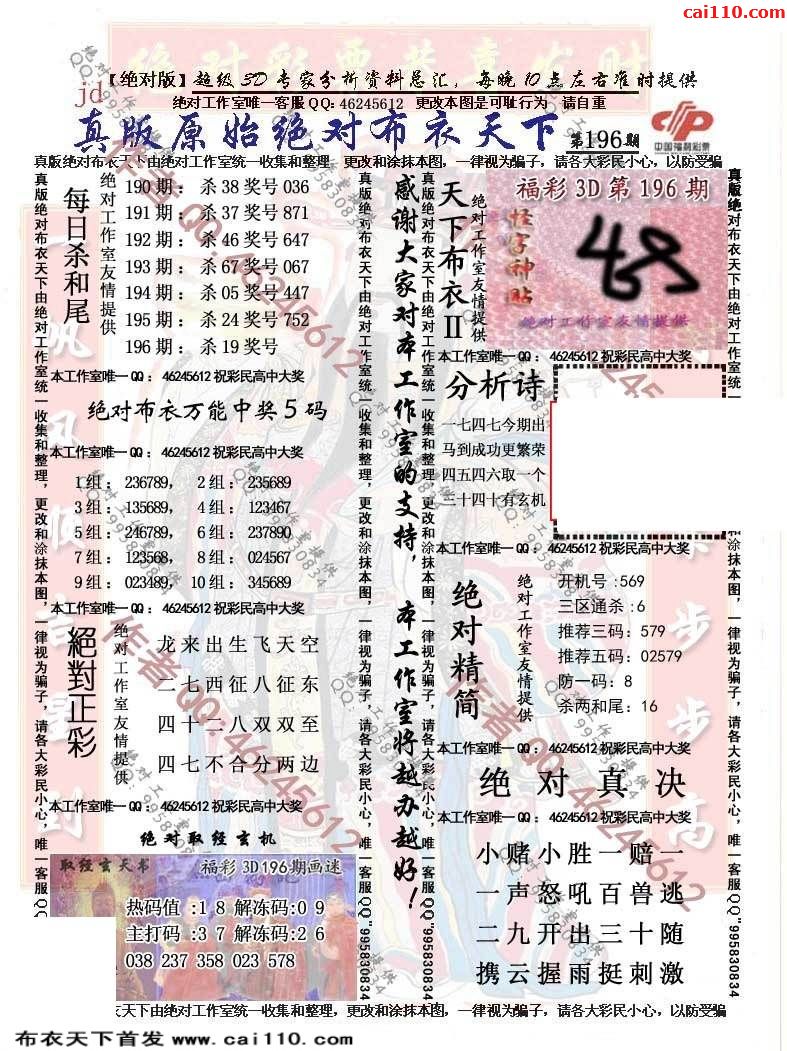 cai110.com
【绝对版】超级3D专家分析资料总汇，每晚10点左右准时提供
jd
绝对工作室唯一客服QQ: 46245612 更改本图是可耻行为 请自重
真版原始绝对布衣天下 第196期
中国福利彩票
真版绝对布衣天下由绝对工作室统一收集和整理，更改和涂抹本图，一律视为骗子，请各大彩民小心，以防受骗
每日杀和尾
绝对工作室友情提供
190期：杀38奖号036
191期：杀37奖号871
192期：杀46奖号647
193期：杀67奖号067
194期：杀05奖号447
195期：杀24奖号752
196期：杀19奖号
本工作室唯一QQ：46245612祝彩民高中大奖
绝对布衣万能中奖5码
本工作室唯一QQ：46245612祝彩民高中大奖
1组：236789， 2组：235689
3组：135689， 4组：123467
5组：246789， 6组：237890
7组：123568， 8组：024567
9组：023489， 10组：345689
本工作室唯一QQ：46245612祝彩民高中大奖
絕對正彩
绝对工作室友情提供
龙来出生飞天空
二七西征八征东
四十二八双双至
四七不合分两边
本工作室唯一QQ：46245612祝彩民高中大奖
绝对取经玄机
取经玄天书
福彩3D196期画迷
热码值：1 8 解冻码：0 9
主打码：3 7 解冻码：2 6
038 237 358 023 578
感谢大家对本工作室的支持，本工作室将越办越好！
天下布衣II
绝对工作室友情提供
福彩3D第196期
怪字神贴
绝对工作室友情提供
本工作室唯一QQ：46245612祝彩民高中大奖
分析诗
一七四七今期出
马到成功更繁荣
四五四六取一个
三十四十有玄机
本工作室唯一QQ：46245612祝彩民高中大奖
绝对精简
绝对工作室友情提供
开机号:569
三区通杀:6
推荐三码:579
推荐五码:02579
防一码:8
杀两和尾:16
本工作室唯一QQ：46245612祝彩民高中大奖
绝对真决
本工作室唯一QQ：46245612祝彩民高中大奖
小赌小胜一赔一
一声怒吼百兽逃
二九开出三十随
携云握雨挺刺激
真版绝对布衣天下由绝对工作室统一收集和整理，更改和涂抹本图，一律视为骗子，请各大彩民小心，唯一客服QQ"995830834
衣天下由绝对工作室统一收集和整理，更改和涂抹本图，一律视为骗子，请各大彩民小心，以防受骗
布衣天下首发 www.cai110.com